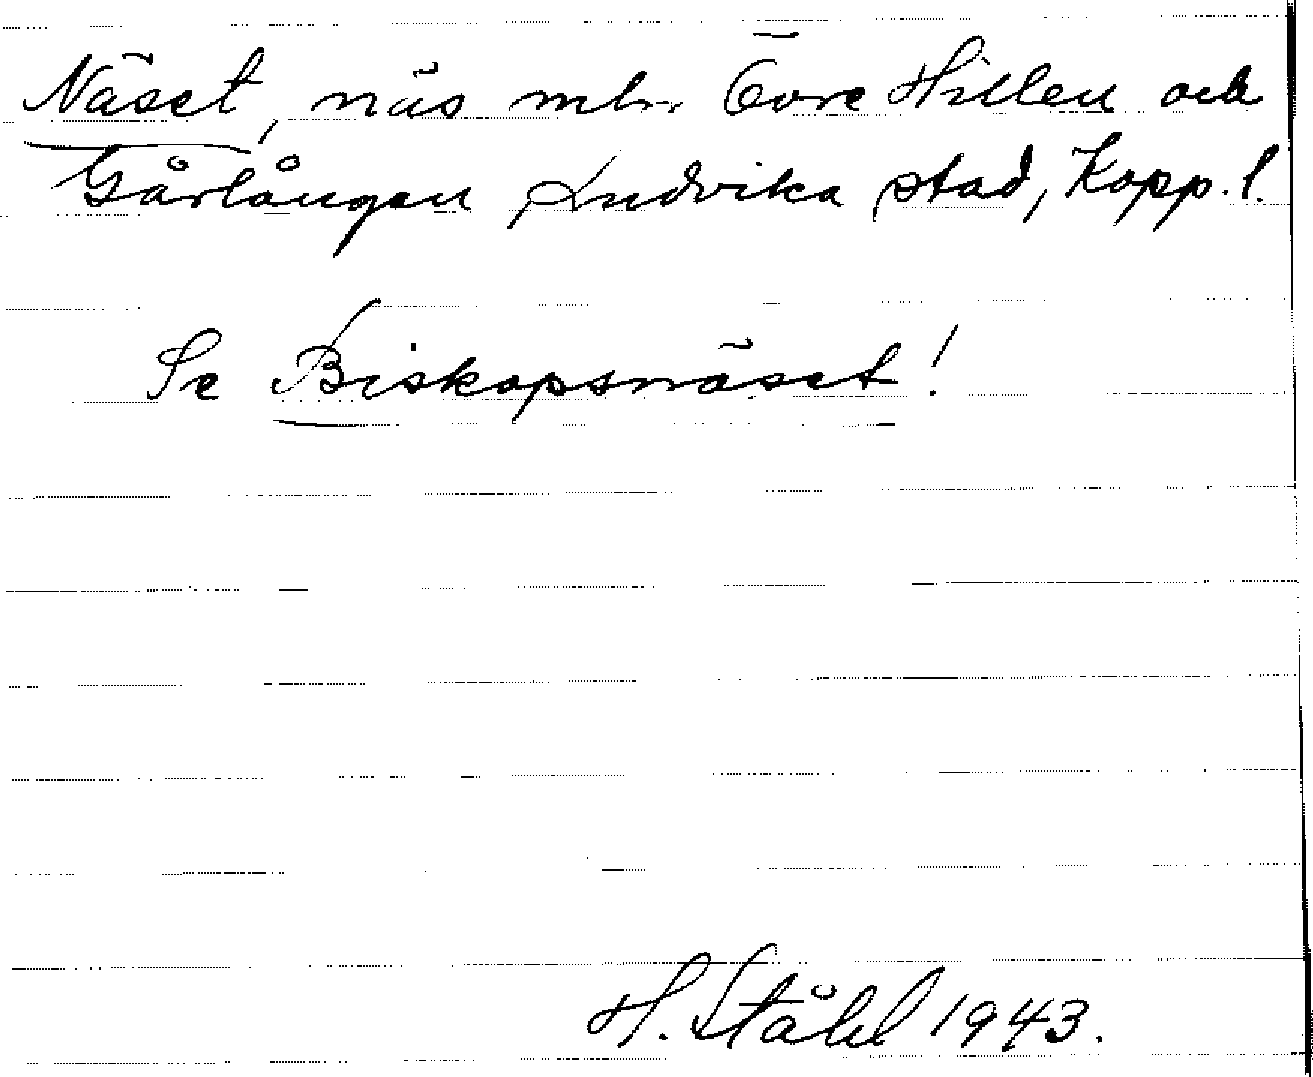 Näset, näs mln Övre Hillen och
Gårlången, Ludvika stad, Kopp. l.
Se Biskopsnäset!
H. Ståhl 1943.